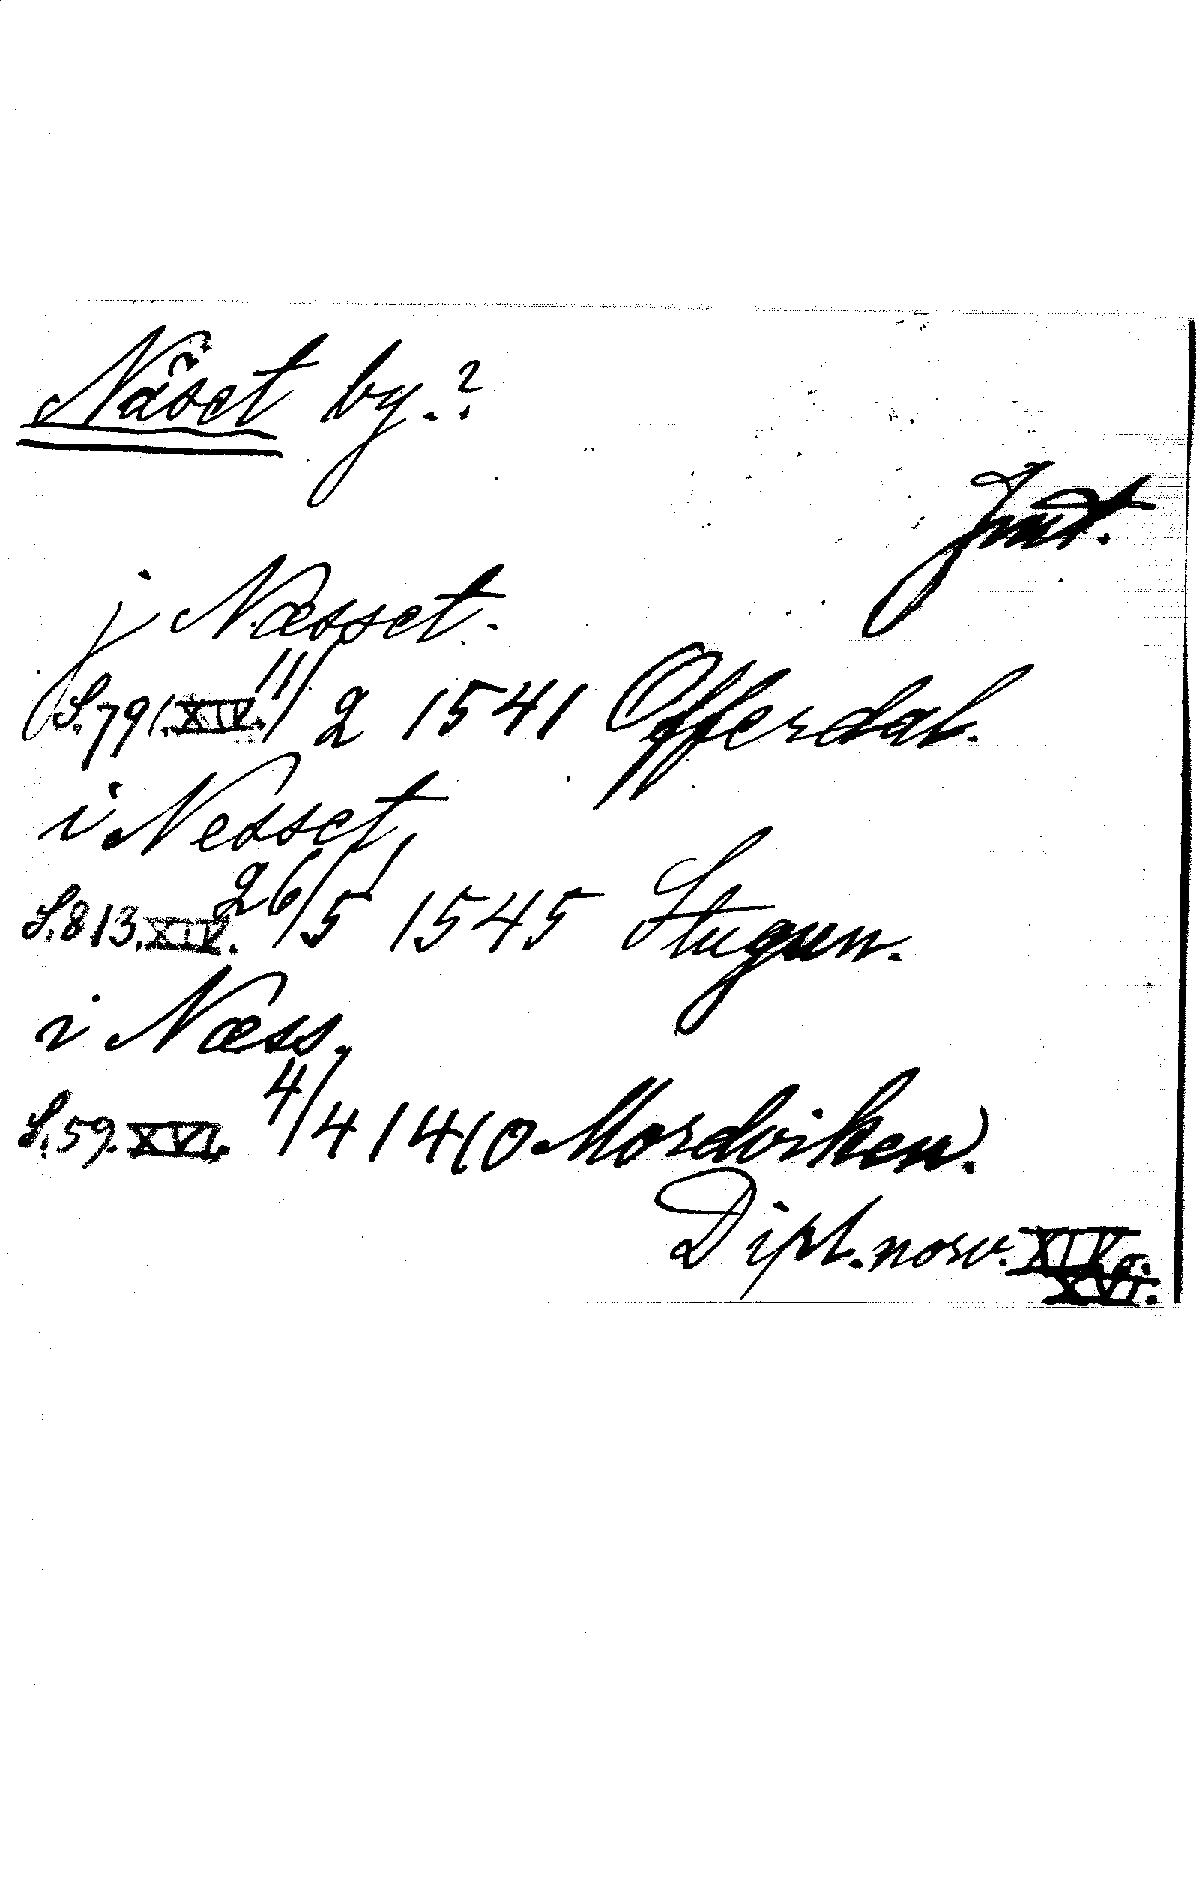 Näset by.?
Jmt.
j Næsset.
S. 791. XIV. 11/2 1541 Offerdal.
i Nesset,
S. 813. XIV. 26/5 1545 Stugun.
i Næss.
S. 59. XVI. 4/4 1410 Mordviken.
Dipl. norv. XIV o.
XVI.